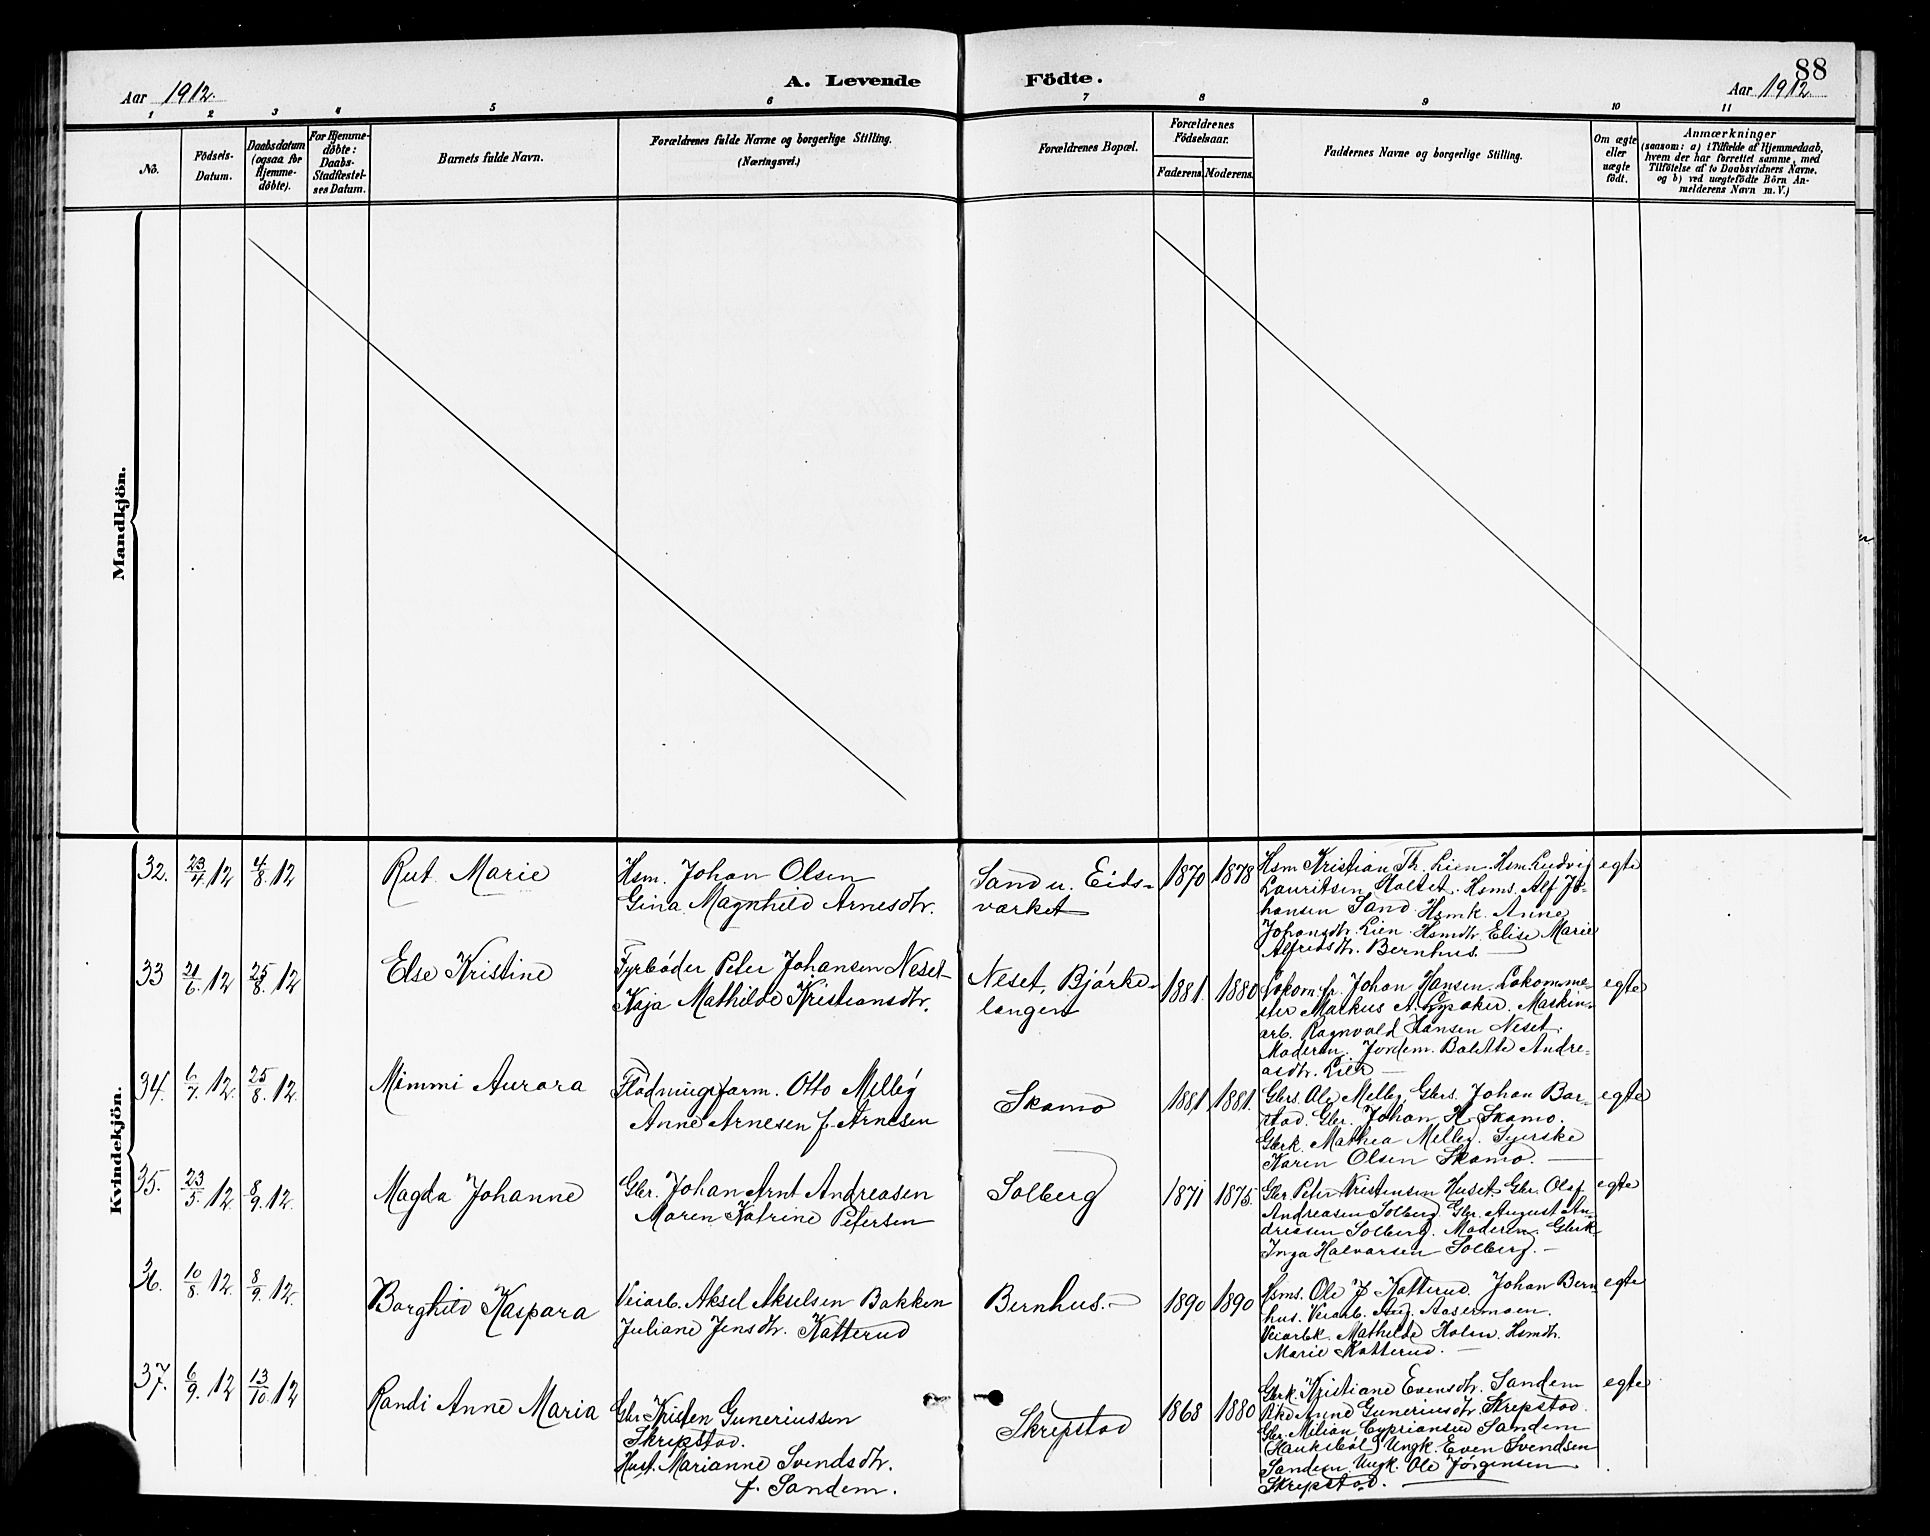 88
Aar 1912. A. Levende Födte. Aar 1912.
1 2 3 4 5 6 7 8 9 10 11
No.
Födsels-
Datum.
Daabsdatum
(ogsaa for
Hjemme-
döbte).
For Hjemme-
döbte:
Daabs-
Stadfæstel-
ses Datum.
Barnets fulde Navn.
Forældrenes fulde Navne og borgerlige Stilling.
(Næringsvei.)
Forældrenes Bopæl.
Forældrenes
Födselsaar.
Faderens. Moderens.
Faddernes Navne og borgerlige Stilling.
Om ægte
eller
uægte
födt.
Anmærkninger
(saasom: a) i Tilfælde af Hjemmedaab,
hvem der har forrettet samme, med
Tilföielse af to Daabsvidners Navne.
og b) ved uægtefödte Börn An-
melderens Navn m. V.)
Mandkjön.
Kvindekjön.
32. 23/4 12 4/8 12 Rut Marie
Hsm. Johan Olsen
Gina Magnhild Arnesdtr.
Sand u. Eids-
varket
1870 1878
Hsm Kristian Th. Lien. Hsm. Ludvig
Lauritsen Holtet. Hsms. Alf Jo-
hansen Sand. Hsmk. Anne
Johansdtr. Lien. Hsmdtr. Elise Marie
Alfredsdtr. Bernhus.
egte
33 21/6 12 25/8 12 Else Kristine
Fyrbøder Peter Johansen Neset
Kaja Mathilde Kristiansdtr.
Neset, Bjørke-
langen
1881. 1880
Lokom.f. Johan Hansen. Lokomme-
ster Markus A. Lysaker. Maskin-
arb. Ragnvald Hansen Neset.
Moderen. Jordem. Balette Andre-
asdtr. Lier
egte
34. 6/7 12. 25/8 12. Mimmi Aurora
Flødningsform. Otto Melleby
Anne Arnesen f. Arnesen
Skamo
1881 1881.
Gbrs. Ole Melleby, Gbrs. Johan Bar-
stad. Gbr. Johan H. Skamo.
Gbrk. Mathea Melleby. Syerske
Karen Olsen Skamo.
egte
35. 23/5 12. 8/9 12. Magda Johanne
Gbr. Johan Arnt Andreasen
Maren Katrine Petersen
Solberg
1871 1875.
Gbr Peter Kristensen Huset. Gbr. Olaf
Andreasen Solberg. Gbr. August An-
dreasen Solberg. Moderen. Gbrk
Inga Halvorsen Solberg.
egte
36. 10/8 12. 8/9 12. Borghild Kaspara
Veiarb. Aksel Akselsen Bakken
Juliane Jensdtr. Katterud
Bernhus.
1890 1890
Hsms. Ole J Katterud. Johan Bern
hus. Veiarb. Aug. Aasermoen.
Veiarbk. Mathilde Holm. Hsmdtr.
Marie Katterud.
egte
37. 6/9 12 13/10 12 Randi Anne Maria
Gbr. Kristen Guneriussen
Skrepstad.
Hust. Marianne Svendsdtr.
f. Sandem.
Skrepstad
1868 1880
Gbrk. Kristiane Evensdtr. Sandem
Pike Anne Guneriusdtr. Skrepstad.
Gbr. Milian Cypriansen Sandem
(Haukebøl) Ungk. Even Svendsen
Sandem. Ungk. Ole Jørgensen
Skrepstad.
egte